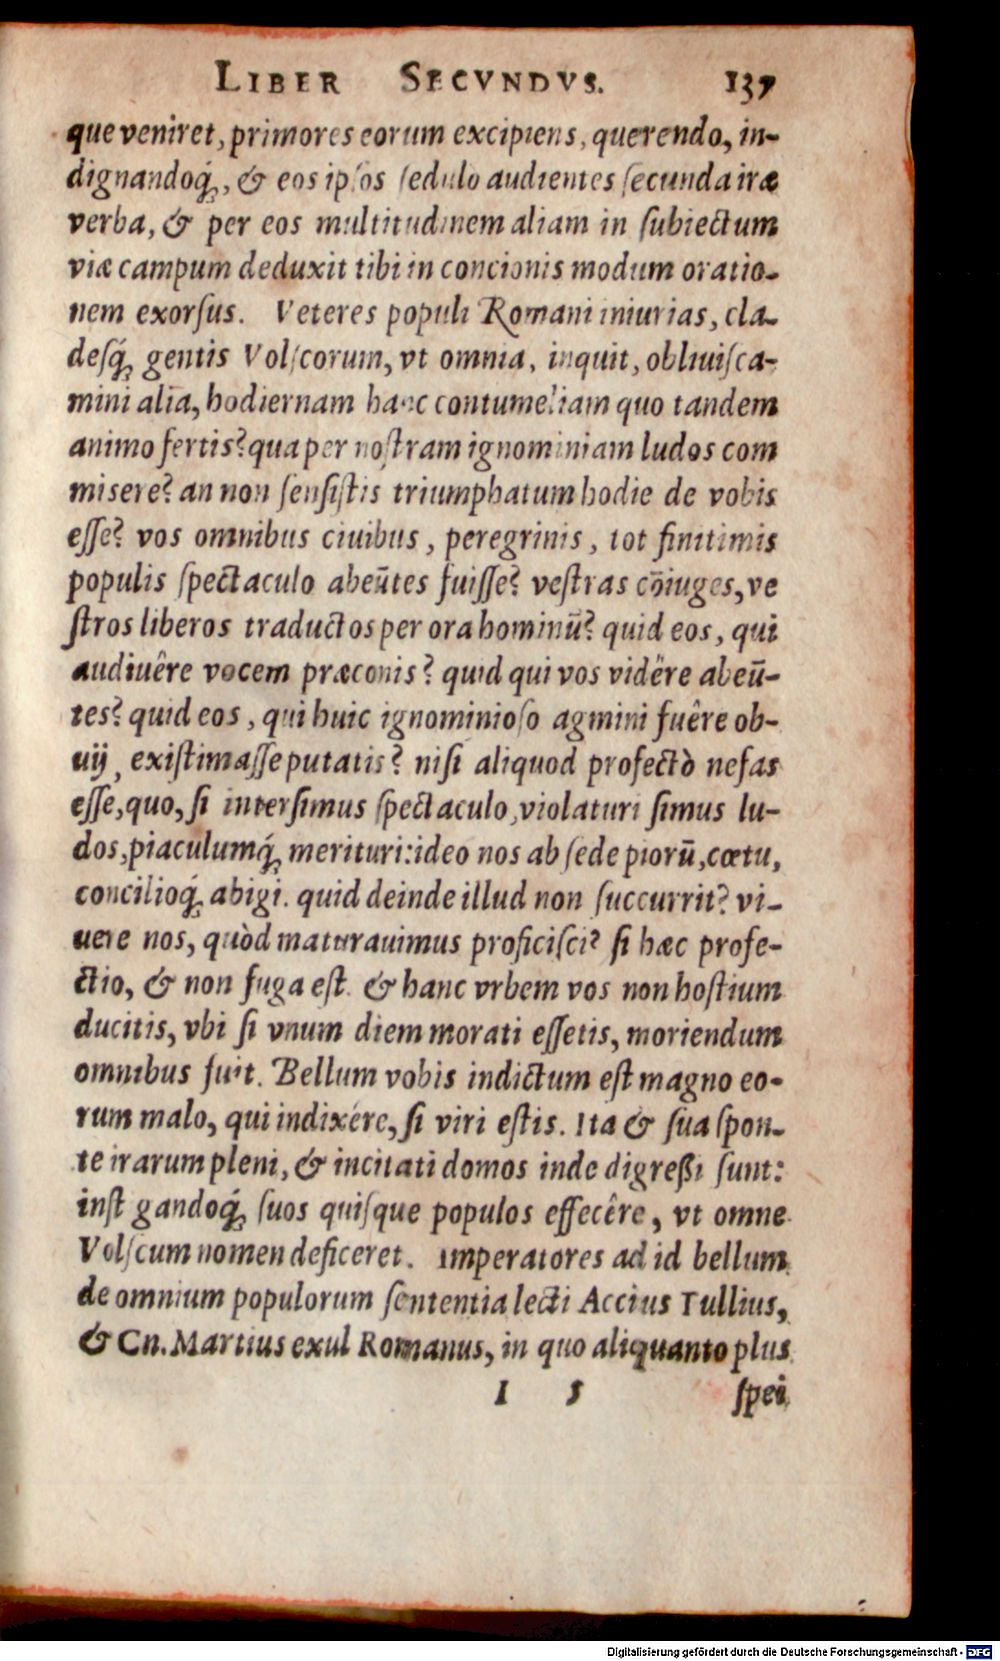 LIBER SECVNDVS. 137
que veniret, primores eorum excipiens, querendo, in-
dignandoq́;, & eos ipsos sedulo audientes secunda iræ
verba, & per eos multitudinem aliam in subiectum
viæ campum deduxit tibi in concionis modum oratio-
nem exorsus. Veteres populi Romani iniurias, cla-
desq́; gentis Volscorum, vt omnia, inquit, obliuisca-
mini alia, hodiernam hanc contumeliam quo tandem
animo fertis? qua per nostram ignominiam ludos com
misere? an non sensistis triumphatum hodie de vobis
esse? vos omnibus ciuibus, peregrinis, tot finitimis
populis spectaculo abeũtes fuisse? vestras cõiuges, ve
stros liberos traductos per ora hominũ? quid eos, qui
audiuêre vocem præconis? quid qui vos vidêre abeũ-
tes? quid eos, qui huic ignominioso agmini fuêre ob-
uij, existimasse putatis? nisi aliquod profectò nefas
esse, quo, si intersimus spectaculo, violaturi simus lu-
dos, piaculumq́; merituri: ideo nos ab sede piorũ, cœtu,
concilioq́; abigi. quid deinde illud non succurrit? vi-
uere nos, quòd maturauimus proficisci? si hæc profe-
ctio, & non fuga est. & hanc vrbem vos non hostium
ducitis, vbi si vnum diem morati essetis, moriendum
omnibus fuit. Bellum vobis indictum est magno eo-
rum malo, qui indixére, si viri estis. Ita & sua spon-
te irarum pleni, & incitati domos inde digreßi sunt:
instigandoq́; suos quisque populos effecêre, vt omne
Volscum nomen deficeret. Imperatores ad id bellum
de omnium populorum sententia lecti Accius Tullius,
& Cn. Martius exul Romanus, in quo aliquanto plus
I 5 spei
Digitalisierung gefördert durch die Deutsche Forschungsgemeinschaft - DFG